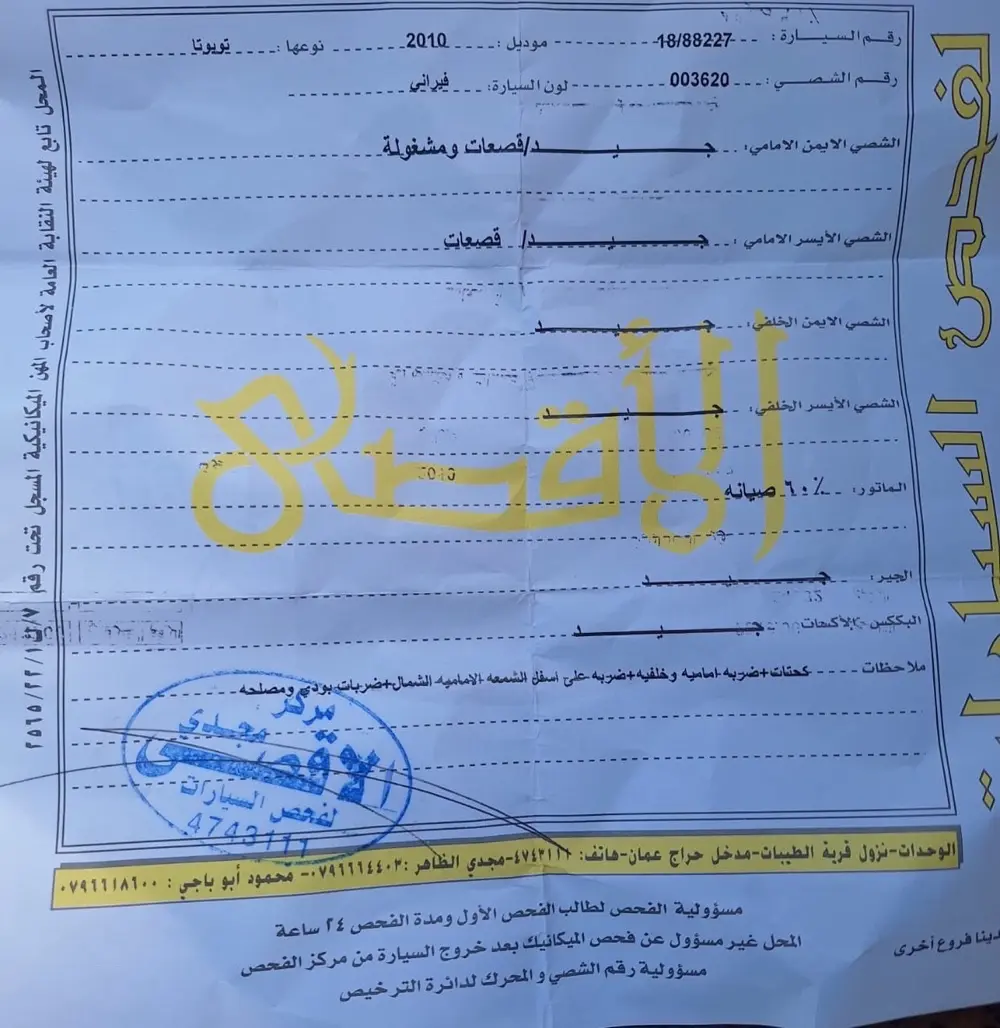 رقم السيارة: 18/88227 موديل: 2010 نوعها: تويوتا
رقم الشصي: 003620 لون السيارة: فيراني
الشصي الايمن الامامي: جيد/قصعات ومشغولة
الشصي الأيسر الامامي: جيد/ قصعات
الشصي الايمن الخلفي: جيد
الشصي الأيسر الخلفي: جيد
الماتور: ٦٠٪ صيانه
الجير: جيد
البككس والأكسات: جيد
ملاحظات كحتات+ضربه امامية وخلفيه+ضربه على اسفل الشمعه الاماميه الشمال+ضربات بودي ومصلحه
الأقصى
لفحص السيارات
المحل تابع لهيئة النقابة العامة لأصحاب المهن الميكانيكية المسجل تحت رقم
مركز
مجدي
الاقصى
لفحص السيارات
4743111
الوحدات-نزول قرية الطيبات-مدخل حراج عمان-هاتف: ٤٧٤٣١١١-مجدي الظاهر: ٠٧٩٦٦٦٤٤٠٣- محمود أبو باجي: ٠٧٩٦٦١٨٦٠٠
مسؤولية الفحص لطالب الفحص الأول ومدة الفحص ٢٤ ساعة
المحل غير مسؤول عن فحص الميكانيك بعد خروج السيارة من مركز الفحص
مسؤولية رقم الشصي والمحرك لدائرة الترخيص
لدينا فروع أخرى